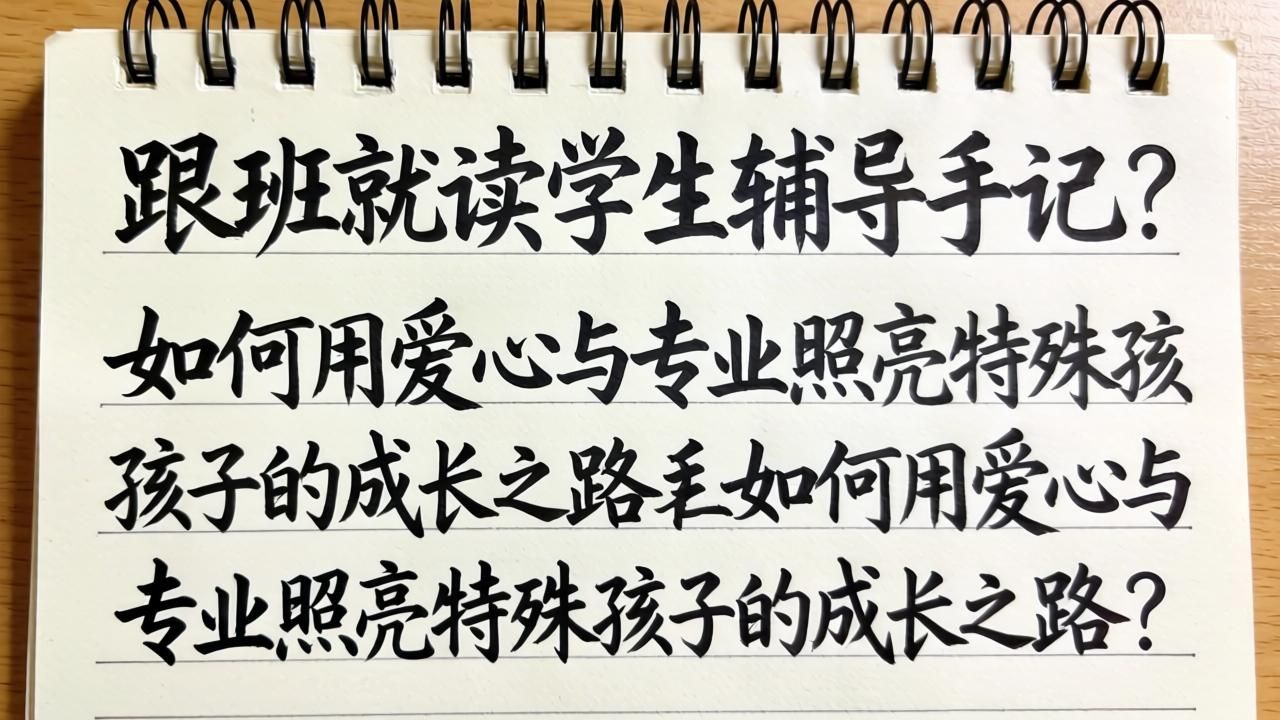 跟班就读学生辅导手记？
如何用爱心与专业照亮特殊孩
孩子的成长之路毛如何用爱心与
专业照亮特殊孩子的成长之路？